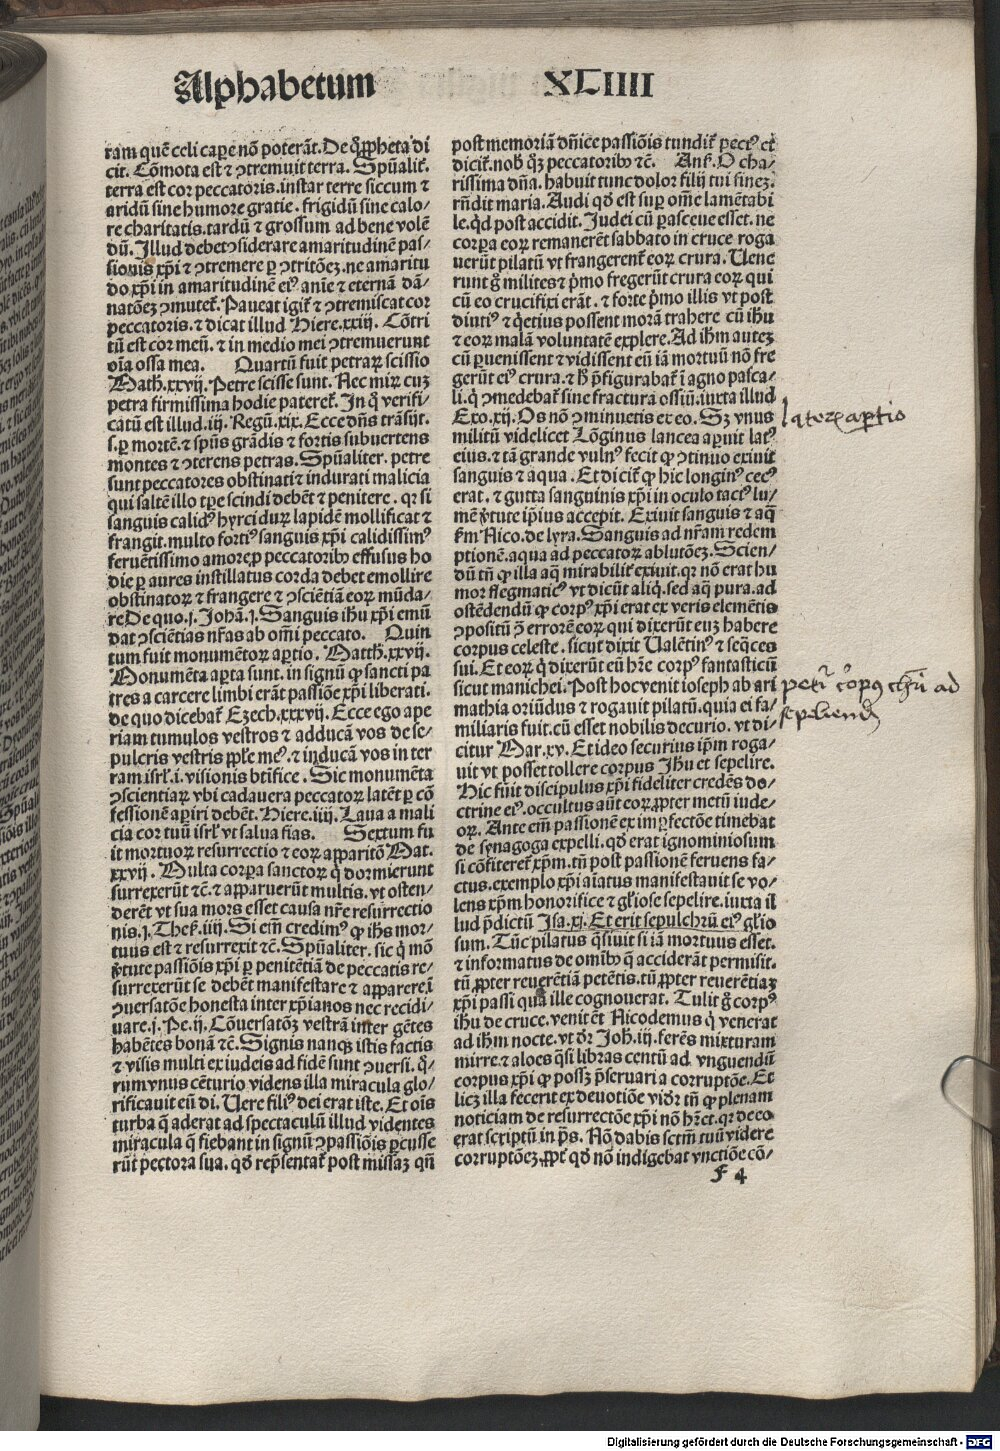 Alphabetum XLIIII
ram quē celi capere nō poterāt. De q̊ ꝓpheta di
cit. Cōmota est ⁊ ꝯtremuit terra. Spūalit̄.
terra est cor peccatoris. instar terre siccum ⁊
aridū sine humore gratie. frigidū sine calo⸗
re charitatis. tardū ⁊ grossum ad bene volē
dū. Illud debet ꝯsiderare amaritudinē pas⸗
sionis xp̄i ⁊ ꝯtremere ꝑ ꝯtritōeʒ. ne amaritu
do xp̄i in amaritudinē eiꝰ aīe ⁊ eternā dā⸗
natōeʒ ꝯmutet̄. Paueat igit̄ ⁊ ꝯtremiscat cor
peccatoris. ⁊ dicat illud Hiere.xxiij. Cōtri
tū est cor meū. ⁊ in medio mei ꝯtremuerunt
oīa ossa mea. Quartū fuit petraꝝ scissio
Math.xxvij. Petre scisse sunt. Nec miꝝ cuʒ
petra firmissima hodie pateret̄. In q̊ verifi⸗
catū est illud.iij. Regū.xix. Ecce dn̄s trāsijt.
s.ꝑ mortē. ⁊ spūs grādis ⁊ fortis subuertens
montes ⁊ ꝯterens petras. Spūaliter. petre
sunt peccatores obstinati ⁊ indurati malicia
qui saltē illo tꝑe scindi debēt ⁊ penitere. qꝛ si
sanguis calidꝰ hyrci duꝝ lapidē mollificat ⁊
frangit. multo fortiꝰ sanguis xp̄i calidissimꝰ
feruētissimo amore ꝓ peccatoribꝰ effusus ho
die ꝑ aures instillatus corda debet emollire
obstinatoꝝ ⁊ frangere ⁊ ꝯsciētiā eoꝝ mūda⸗
re De quo.j. Johā.j. Sanguis ihū xp̄i emū
dat ꝯsciētias nr̄as ab om̄i peccato. Quin
tum fuit monumētoꝝ aꝑtio. Matth.xxvij.
Monumēta aꝑta sunt. in signū ꝙ sancti pa
tres a carcere limbi erāt passiōe xp̄i liberati.
de quo dicebat̄ Ezech.xxxvij. Ecce ego ape
riam tumulos vestros ⁊ adducā vos de se⸗
pulcris vestris pp̄le meꝰ. ⁊ inducā vos in ter
ram isrl̄.i. visionis btīfice. Sic monumēta
ꝯscientiaꝝ vbi cadauera peccatoꝝ latēt ꝑ cō
fessionē aꝑiri debēt. Hiere.iiij. Laua a mali
cia cor tuū isrl̄ vt salua fias. Sextum fu
it mortuoꝝ resurrectio ⁊ eoꝝ apparitō Mat.
xxvij. Multa corꝑa sanctoꝝ q̇ dormierunt
surrexerūt ⁊c̄. ⁊ apparuerūt multis. vt osten⸗
derēt vt sua mors esset causa nr̄e resurrectio
nis.j. Thes̄.iiij. Si em̄ credimꝰ ꝙ ihs̄ mor⸗
tuus est ⁊ resurrexit ⁊c̄. Spūaliter. sic q̇ mō
v̄tute passiōis xp̄i ꝑ penitētiā de peccatis re⸗
surrexerūt se debēt manifestare ⁊ apparere.ī
ꝯuersatōe honesta inter xp̄ianos nec recidi⸗
uare.j. Pe.ij. Cōuersatōʒ vestrā inter gētes
habētes bonā ⁊c̄. Signis nanqꝫ istis factis
⁊ visis multi ex iudeis ad fidē sunt ꝯuersi. q̊⸗
rum vnus cēturio videns illa miracula glo⸗
rificauit eū dī. Uere filiꝰ dei erat iste. Et oīs
turba q̄ aderat ad spectaculū illud videntes
miracula q̄ fiebant in signū ꝯpassiōis ꝑcusse
rūt pectora sua. qd̄ rep̄sentat̄ post missaʒ qn̄
post memoriā dn̄ice passiōis tundit̄ pectꝰ et
dicit̄. nob̄ q̊ʒ peccatoribꝰ ⁊c̄. Ans̄. O cha⸗
rissima dn̄a. habuit tunc dolor filij tui fineʒ.
rn̄dit maria. Audi qd̄ est suꝑ om̄e lamētabi
le. qd̄ post accidit. Judei cū ꝑasceue esset. ne
corꝑa eoꝝ remanerēt sabbato in cruce roga
uerūt pilatū vt frangerent̄ eoꝝ crura. Uene
runt g̊ milites ⁊ p̄mo fregerūt crura eoꝝ qui
cū eo crucifixi erāt. ⁊ forte p̄mo illis vt post
diutiꝰ ⁊ q̇etius possent morā trahere cū ihū
⁊ eoꝝ malā voluntatē explere. Ad ihm̄ auteʒ
cū ꝑuenissent ⁊ vidissent eū iā mortuū nō fre
gerūt eiꝰ crura. ⁊ h̄ p̄figurabat̄ ī agno pasca⸗
li. q̇ ꝯmedebat̄ sine fractura ossiū. iuxta illud
Exo.xij. Os nō ꝯminuetis ex eo. Sʒ vnus
militū videlicet Lōginus lancea aꝑuit latꝰ
eius. ⁊ tā grande vulnꝰ fecit ꝙ ꝯtinuo exiuit
sanguis ⁊ aqua. Et dicit̄ ꝙ hic longinꝰ cecꝰ
erat. ⁊ gutta sanguinis xp̄i in oculo tactꝰ lu⸗
mē v̄tute ip̄ius accepit. Exiuit sanguis ⁊ aq̄
s̄m Nico. de lyra. Sanguis ad nr̄am redem
ptionē. aqua ad peccatoꝝ ablutōeʒ. Scien⸗
dū tn̄ ꝙ illa aq̄ mirabilit̄ exiuit. qꝛ nō erat hu
mor flegmaticꝰ vt dicūt aliq̇. sed aq̄ pura. ad
ostēdendū ꝙ corpꝰ xp̄i erat ex veris elemētis
ꝯpositū ꝯ̄ errorē eoꝝ qui dixerūt euʒ habere
corpus celeste. sicut dixit Ualētinꝰ ⁊ seq̄ces
sui. Et eoꝝ q̇ dixerūt eū hr̄e corpꝰ fantasticū
sicut manichei. Post hoc venit ioseph ab ari
mathia oriūdus ⁊ rogauit pilatū. quia ei fa⸗
miliaris fuit. cū esset nobilis decurio. vt di⸗
citur Mar.xv. Et ideo securius ip̄m roga⸗
uit vt posset tollere corpus Jhū et sepelire.
Hic fuit discipulus xp̄i fideliter credēs do⸗
ctrine eiꝰ. occultus aūt eoꝝ ꝓpter metū iude⸗
oꝝ. Ante em̄ passionē ex imꝑfectōe timebat
de synagoga expelli. qd̄ erat ignominiosum
si cōfiteret̄ xp̄m. tn̄ post passionē feruens fa⸗
ctus. exemplo xp̄i aīatus manifestauit se vo⸗
lens xp̄m honorifice ⁊ gl̄iose sepelire. iuxta il
lud p̄dictū Isa.xj. Et erit sepulchrū eiꝰ gl̄io
sum. Tūc pilatus q̄siuit si iā mortuus esset.
⁊ informatus de omībꝰ q̄ acciderāt permisit.
tū ꝓpter reuerētiā petētis. tū ꝓpter reuerētiaʒ
xp̄i passi quā ille cognouerat. Tulit g̊ corpꝰ
ihū de cruce. venit ēt Nicodemus q̇ venerat
ad ihm̄ nocte. vt dr̄ Joh̄.iij. ferēs mixturam
mirre. ⁊ aloes q̄si libras centū ad vnguendū
corpus xp̄i ꝙ possʒ p̄seruari a corruptōe. Et
licʒ illa fecerit ex deuotiōe vidr̄ tn̄ ꝙ plenam
noticiam de resurrectōe xp̄i nō hr̄et. qꝛ de eo
erat scriptū in ps̄. Nō dabis sctm̄ tuū videre
corruptōeʒ. ꝓpt̄ qd̄ nō indigebat vnctiōe cō⸗
lateris apertio
petit̄ corpꝰ chr̄i ad
sepeliend̄
f 4
Digitalisierung gefördert durch die Deutsche Forschungsgemeinschaft - DFG